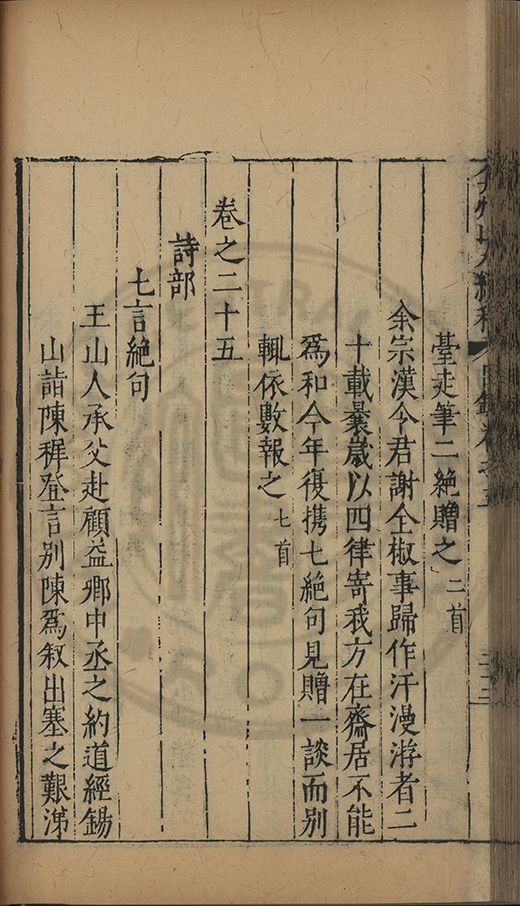 臺走筆二絶贈之 二首
余宗漢令君謝全椒事歸作汗漫游者二
十載曩歲以四律寄我方在齋居不能
爲和今年復携七絶句見贈一談而別
輒依數報之 七首
卷之二十五
詩部
七言絶句
王山人承父赴顧益卿中丞之約道經錫
山詣陳穉登言別陳爲叙出塞之艱涕